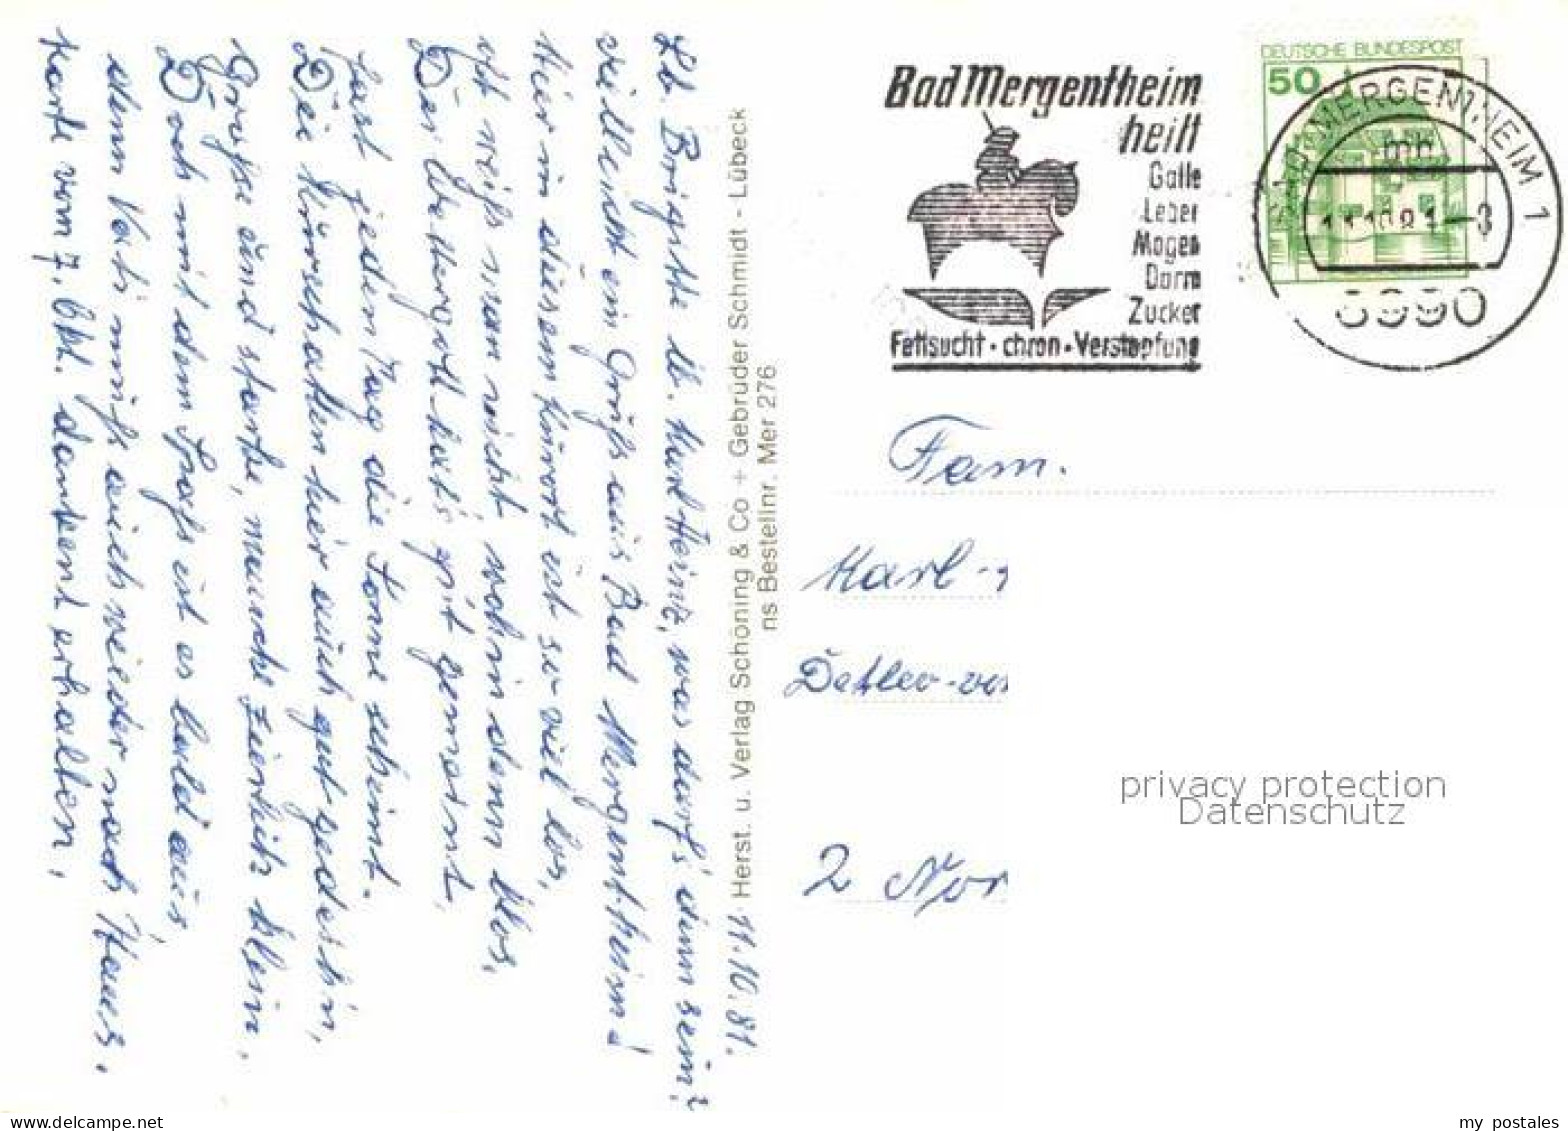 11.10.81.
Lb. Brigitte u. Karl Heinz, was darf's denn sein?
vielleicht ein Gruß aus Bad Mergentheim!
Hier in diesem Kurort ist so viel los,
oft weiß man nicht wohin denn blos,
Der Wettergott hat's gut gemeint,
fast jeden Tag die Sonne scheint.
Die Kurschatten hier auch gut gedeih'n,
Große und starke, manche zierlich klein.
Doch mit dem Spaß ist es bald aus,
denn Vati muß auch wieder nach Haus.
Karte vom 7. Okt. dankend erhalten,
Herst. u. Verlag Schöning & Co + Gebrüder Schmidt - Lübeck
ns Bestellnr. Mer 276
Bad Mergentheim
heilt
Galle
Leber
Magen
Darm
Zucker
Fettsucht · chron · Verstopfung
DEUTSCHE BUNDESPOST
50
MERGENTHEIM 1
mh
11.10.81-8
6990
Fam.
Karl-
Detlev-von
2 Nor
privacy protection
Datenschutz
my postales